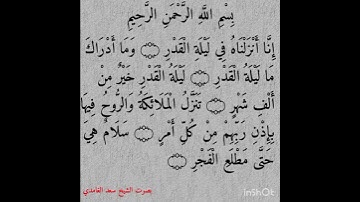 بِسْمِ اللَّهِ الرَّحْمَنِ الرَّحِيمِ
إِنَّا أَنْزَلْنَاهُ فِي لَيْلَةِ الْقَدْرِ ۝ وَمَا أَدْرَاكَ
مَا لَيْلَةُ الْقَدْرِ ۝ لَيْلَةُ الْقَدْرِ خَيْرٌ مِنْ
أَلْفِ شَهْرٍ ۝ تَنَزَّلُ الْمَلَائِكَةُ وَالرُّوحُ فِيهَا
بِإِذْنِ رَبِّهِمْ مِنْ كُلِّ أَمْرٍ ۝ سَلَامٌ هِيَ
حَتَّى مَطْلَعِ الْفَجْرِ ۝
بصوت الشيخ سعد الغامدي
InShOt